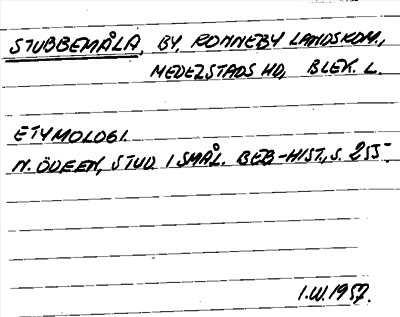 STUBBEMÅLA, BY, RONNEBY LANDSKOM.,
MEDELSTADS HD, BLEK. L.
ETYMOLOGI.
N. ÖDEEN, STUD. I SMÅL. BEB-HIST., S. 255.
1957.